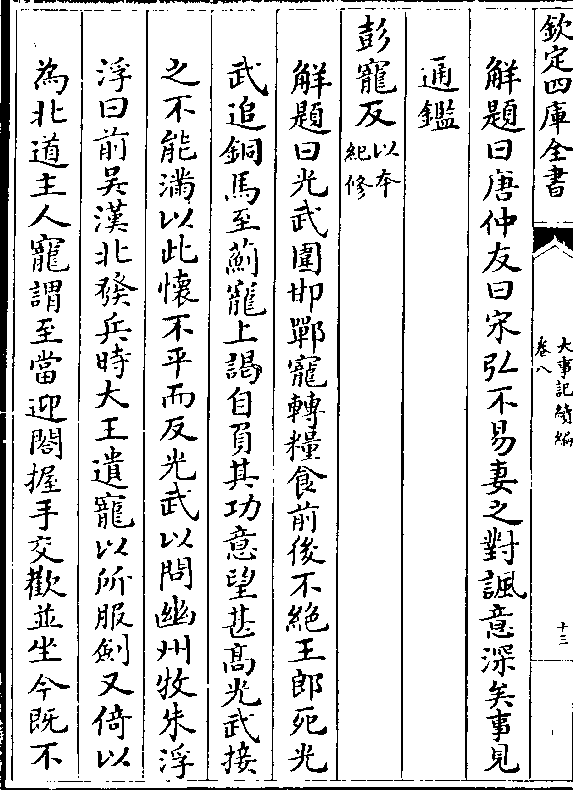 欽定四庫全書
大事記續編
卷八
十三
解題曰唐仲友曰宋弘不易妻之對諷意深矣事見
通鑑
彭寵反以本
紀修
解題曰光武圍邯鄲寵轉糧食前後不絶王郎死光
武追銅馬至薊寵上謁自負其功意望甚髙光武接
之不能滿以此懷不平而反光武以問幽州牧朱浮
浮曰前吳漢北發兵時大王遺寵以所服劍又倚以
為北道主人寵謂至當迎閤握手交歡並坐今既不